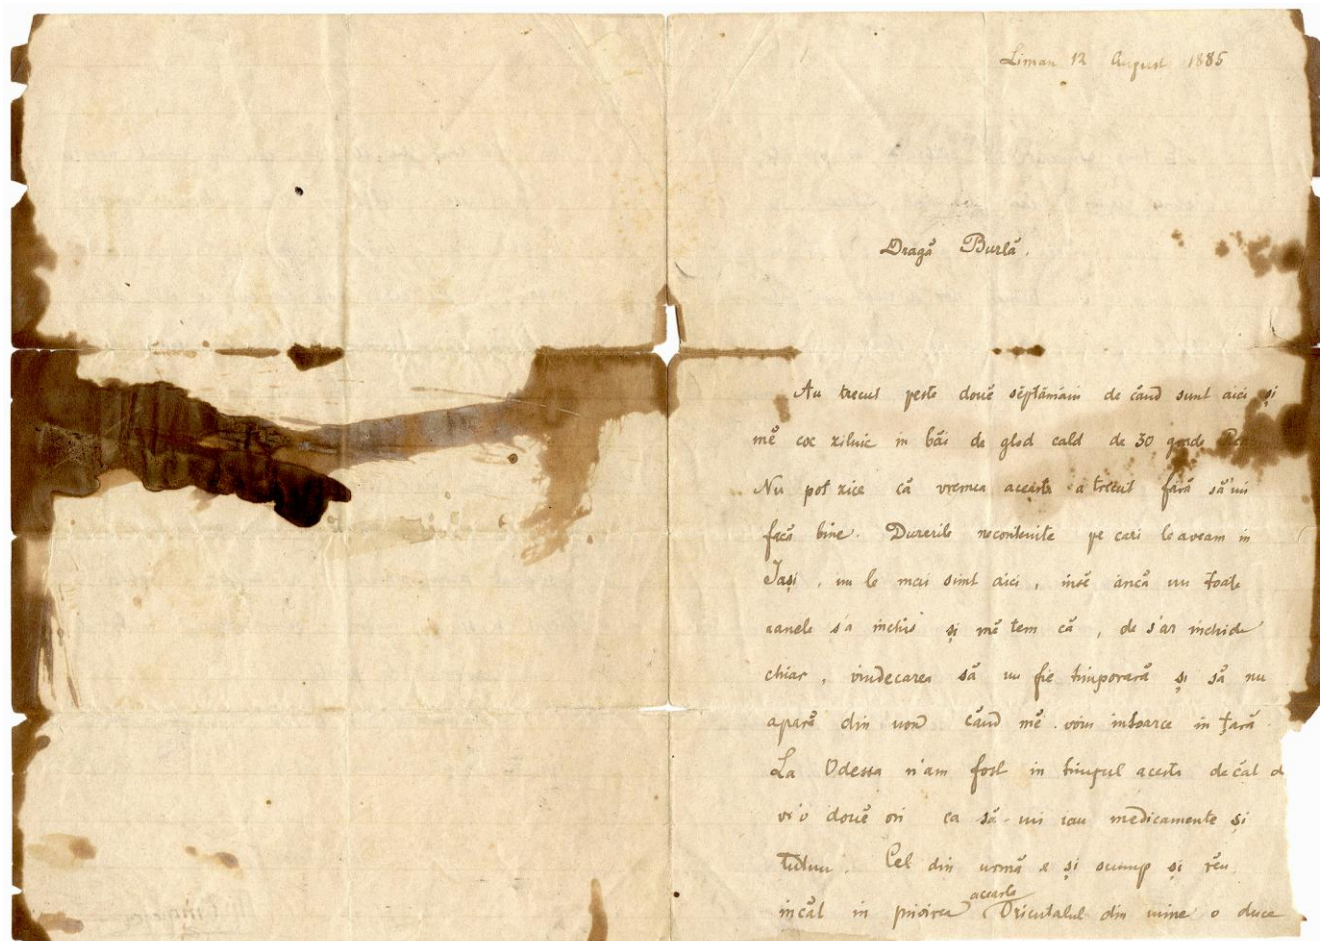 Liman 12 August 1885
Dragă Burlă,
Au trecut peste douĕ sĕptămâni de când sunt aici și
mĕ coc zilnic in băi de glod cald de 30 grade
Nu pot zice că vremea aceasta a trecut fără să'mi
facă bine. Durerile necontenite pe cari le aveam in
Iași, nu le mai simt aici, insĕ ancă nu toate
ranele s'a inchis și mĕ tem că, de s'ar inchide
chiar, vindecarea să nu fie timporară și să nu
apară din nou când mĕ voiu intoarce in țară.
La Odessa n'am fost in timpul acesta decât d
vr'o douĕ ori ca să-mi iau medicamente și
tutun. Cel din urmă e și scump și rĕu,
incât in privirea aceasta Orientalul din mine o duce